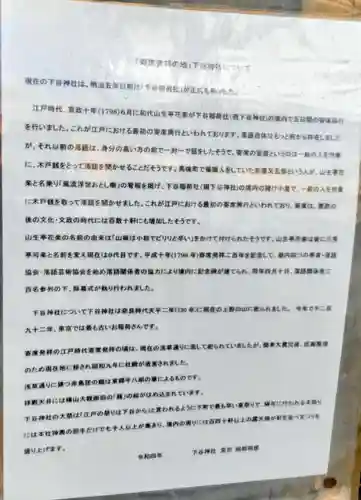 「寄席発祥の地」下谷神社について
現在の下谷神社は、明治五年以前は「下谷稲荷社」が正式名称でした。
江戸時代、寛政十年(1798)6月に初代山生亭花楽が下谷稲荷社(現下谷神社)の境内で五日間の寄席興行
を行いました。これが江戸における最初の寄席興行といわれております。落語自体はもっと前から存在しました
が、それ以前の落語は、身分の高い方の前で一対一で話をしたそうで、寄席の
に、木戸銭をとって落語を聞かせることだそうです。馬喰町で櫛職人をしていた京屋又五郎という人が、山生亭花
楽と名乗り「風流浮世おとし噺」の看板を掲げ、下谷稲荷社(現下谷神社)の境内の
に木戸銭を取って落語を聞かせました。これが江戸における最初の寄席興行といわれており、寄席は、
後の文化・文政の時代には百数十軒にも増加したそうです。
山生亭花楽の名前の由来は「山椒は小粒でピリリと辛い」をかけて付けられたそうです。山生亭花楽は後に三笑
亭可楽と名前を変え現在は9代目です。平成十年(1798年)寄席発祥二百年を記念して、
協会・落語芸術協会を始め落語関係者の協力により境内に記念碑が建てられ、同年四月十日、落語関係者二
百名参列の下、除幕式が執り行われました。
下谷神社について下谷神社は奈良時代天平二年(730年)に現在の上野の山に祀られました。今年で千二百
九十二年、東京では最も古いお稲荷さんです。
寄席発祥の江戸時代寛政発祥の頃は、現在の浅草通りに面して祀られていましたが、関東大震災後、区画整理
のため現在地に移され昭和九年に社殿が造営されました。
浅草通りに建つ赤鳥居の額は東郷平八郎の筆によるものです。
拝殿天井には横山大観画伯の「龍」の絵がはめ込まれています。
下谷神社の大祭は「江戸の祭りは下谷から」と言われるように下町で最も早い夏祭りで、隔年に行われる本祭り
には本社神輿の担手だけでも千人以上が集まり、境内の周りには百四十軒以上の露天商が軒を並べ
盛り上げます。
令和四年 下谷神社 宮司